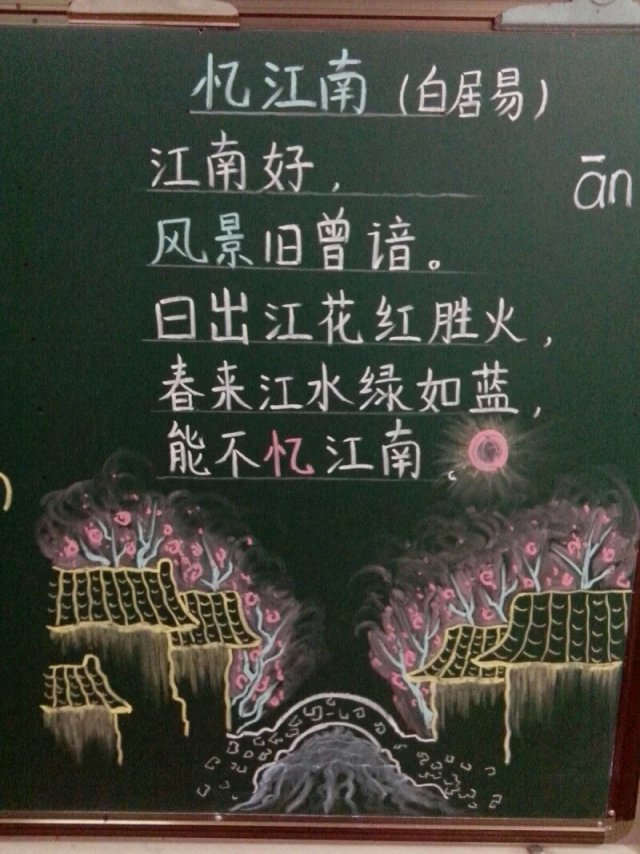 忆江南（白居易）
江南好，
风景旧曾谙。
日出江花红胜火，
春来江水绿如蓝，
能不忆江南。
ān